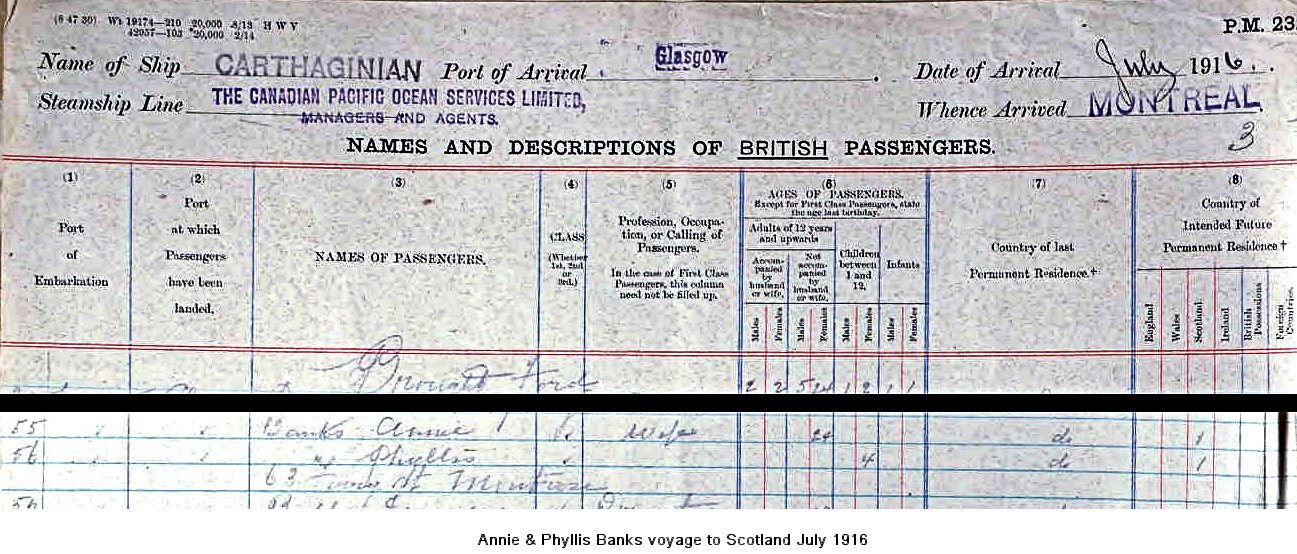 (6 47 30) Wt 19174—210 20,000 8/13 H W V
42057—103 20,000 2/14
P.M. 23.
Name of Ship CARTHAGINIAN Port of Arrival Glasgow. Date of Arrival July 1916.
Steamship Line THE CANADIAN PACIFIC OCEAN SERVICES LIMITED, Whence Arrived MONTREAL
MANAGERS AND AGENTS.
3
NAMES AND DESCRIPTIONS OF BRITISH PASSENGERS.
(1) (2) (3) (4) (5) (6) (7) (8)
Port of Embarkation
Port at which Passengers have been landed.
NAMES OF PASSENGERS.
CLASS (Whether 1st, 2nd or 3rd.)
Profession, Occupation, or Calling of Passengers.
In the case of First Class Passengers, this column need not be filled up.
AGES OF PASSENGERS.
Except for First Class Passengers, state the age last birthday.
Adults of 12 years and upwards
Accompanied by husband or wife.
Not accompanied by husband or wife.
Children between 1 and 12.
Infants
Males Females Males Females Males Females Males Females
Country of last Permanent Residence.†
Country of Intended Future Permanent Residence†
England Wales Scotland Ireland British Possessions Foreign Countries
Ford 2 2 5 24 1 2 1 1
55 Banks Annie Wife 24 do 1
56 " Phyllis 4 do 1
63 St Montrose
Annie & Phyllis Banks voyage to Scotland July 1916